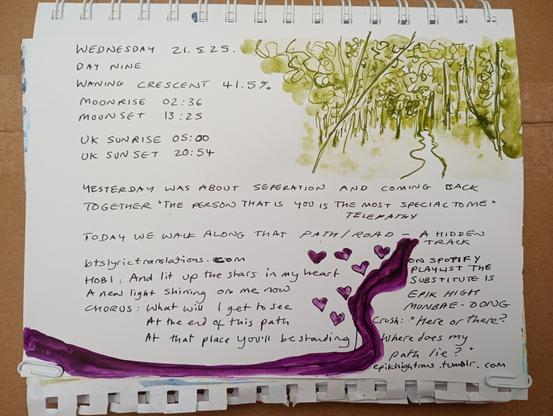 WEDNESDAY 21.5.25.
DAY NINE
WANING CRESCENT 41.5%
MOONRISE 02:36
MOONSET 13:25
UK SUNRISE 05:00
UK SUNSET 20:54
YESTERDAY WAS ABOUT SEPERATION AND COMING BACK
TOGETHER "THE PERSON THAT IS YOU IS THE MOST SPECIAL TO ME"
TELEPATHY
TODAY WE WALK ALONG THAT PATH/ROAD - A HIDDEN
TRACK
btslyrictranslations.com
HOBI: And lit up the stars in my heart
A new light shining on me now
CHORUS: What will I get to see
At the end of this path
At that place you'll be standing
ON SPOTIFY
PLAYLIST THE
SUBSTITUTE IS
EPIK HIGH
MUNBAE-DONG
Crush: "Here or there?
Where does my
path lie?"
epikhightrans.tumblr.com